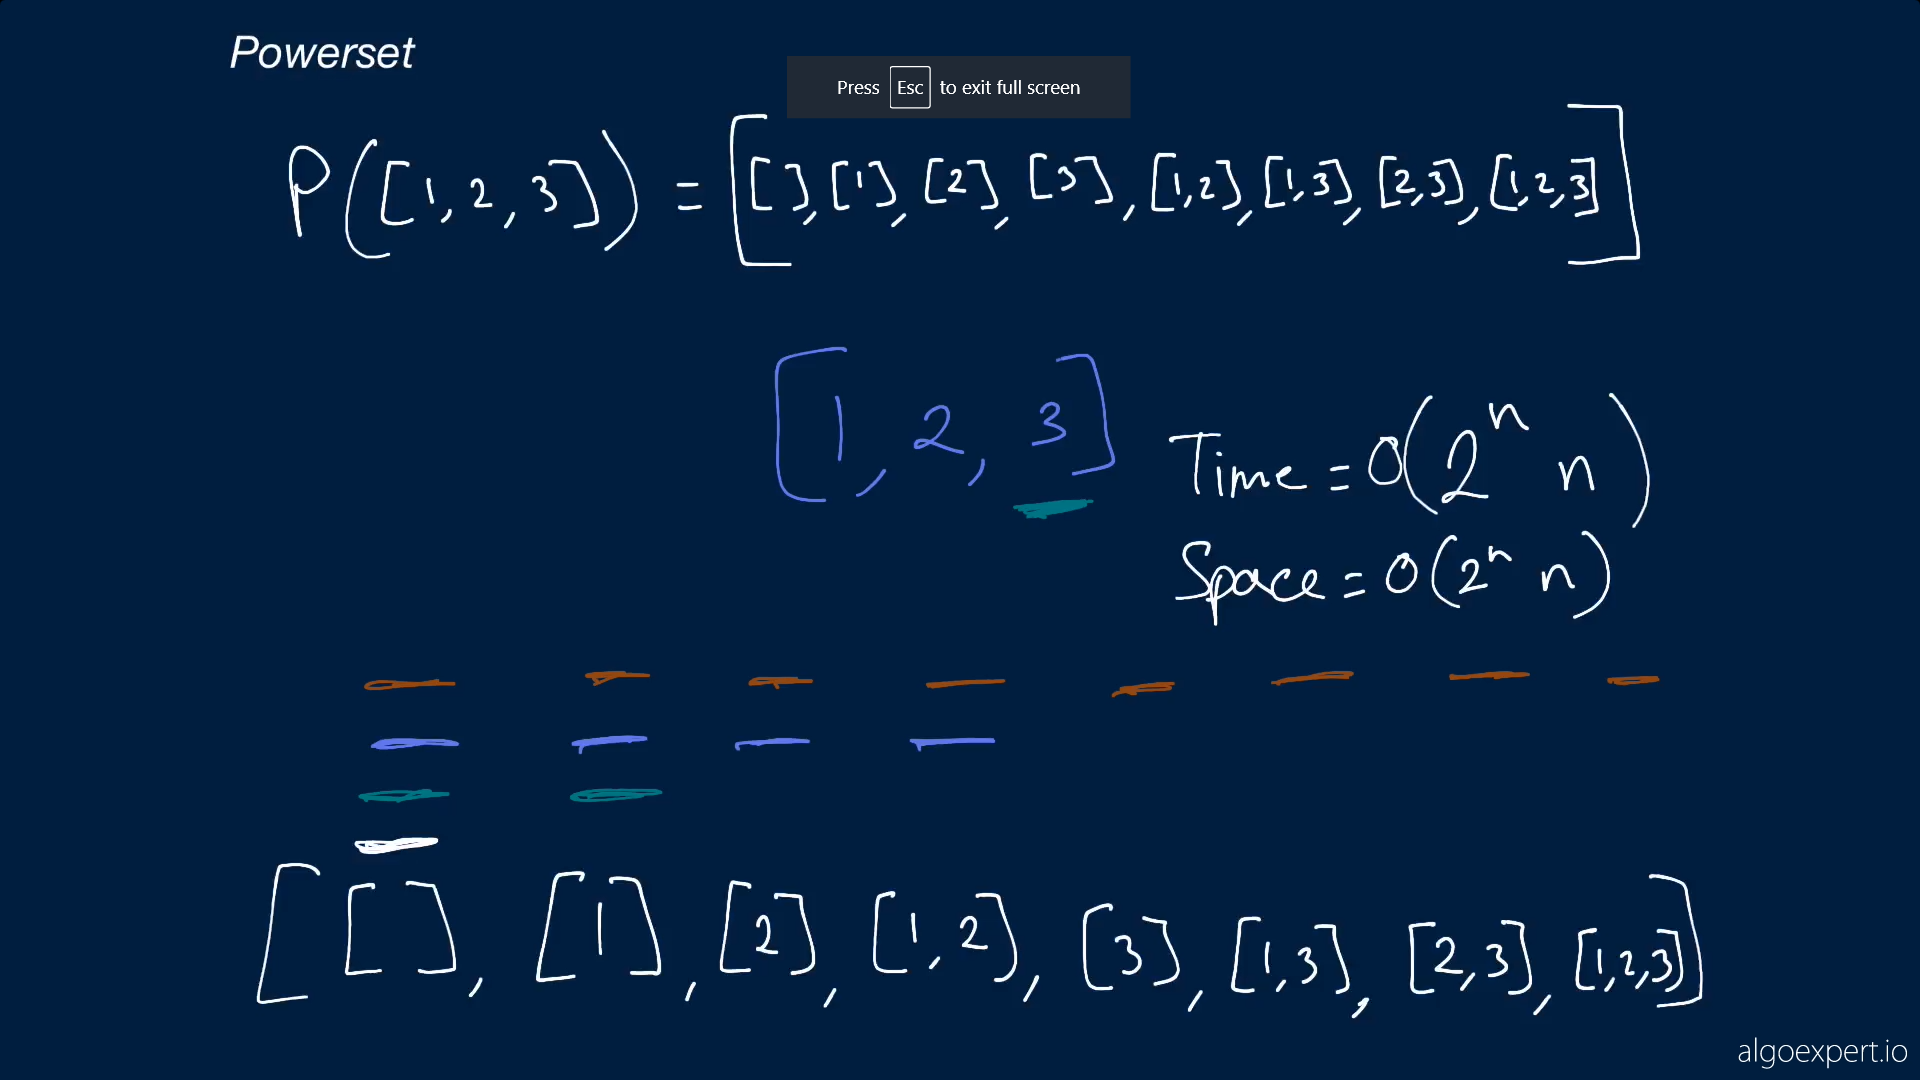 Powerset
Press Esc to exit full screen
P([1,2,3]) = [[],[1],[2],[3],[1,2],[1,3],[2,3],[1,2,3]]
[1,2,3]
Time = O(2ⁿ n)
Space = O(2ⁿ n)
[[],[1],[2],[1,2],[3],[1,3],[2,3],[1,2,3]]
algoexpert.io